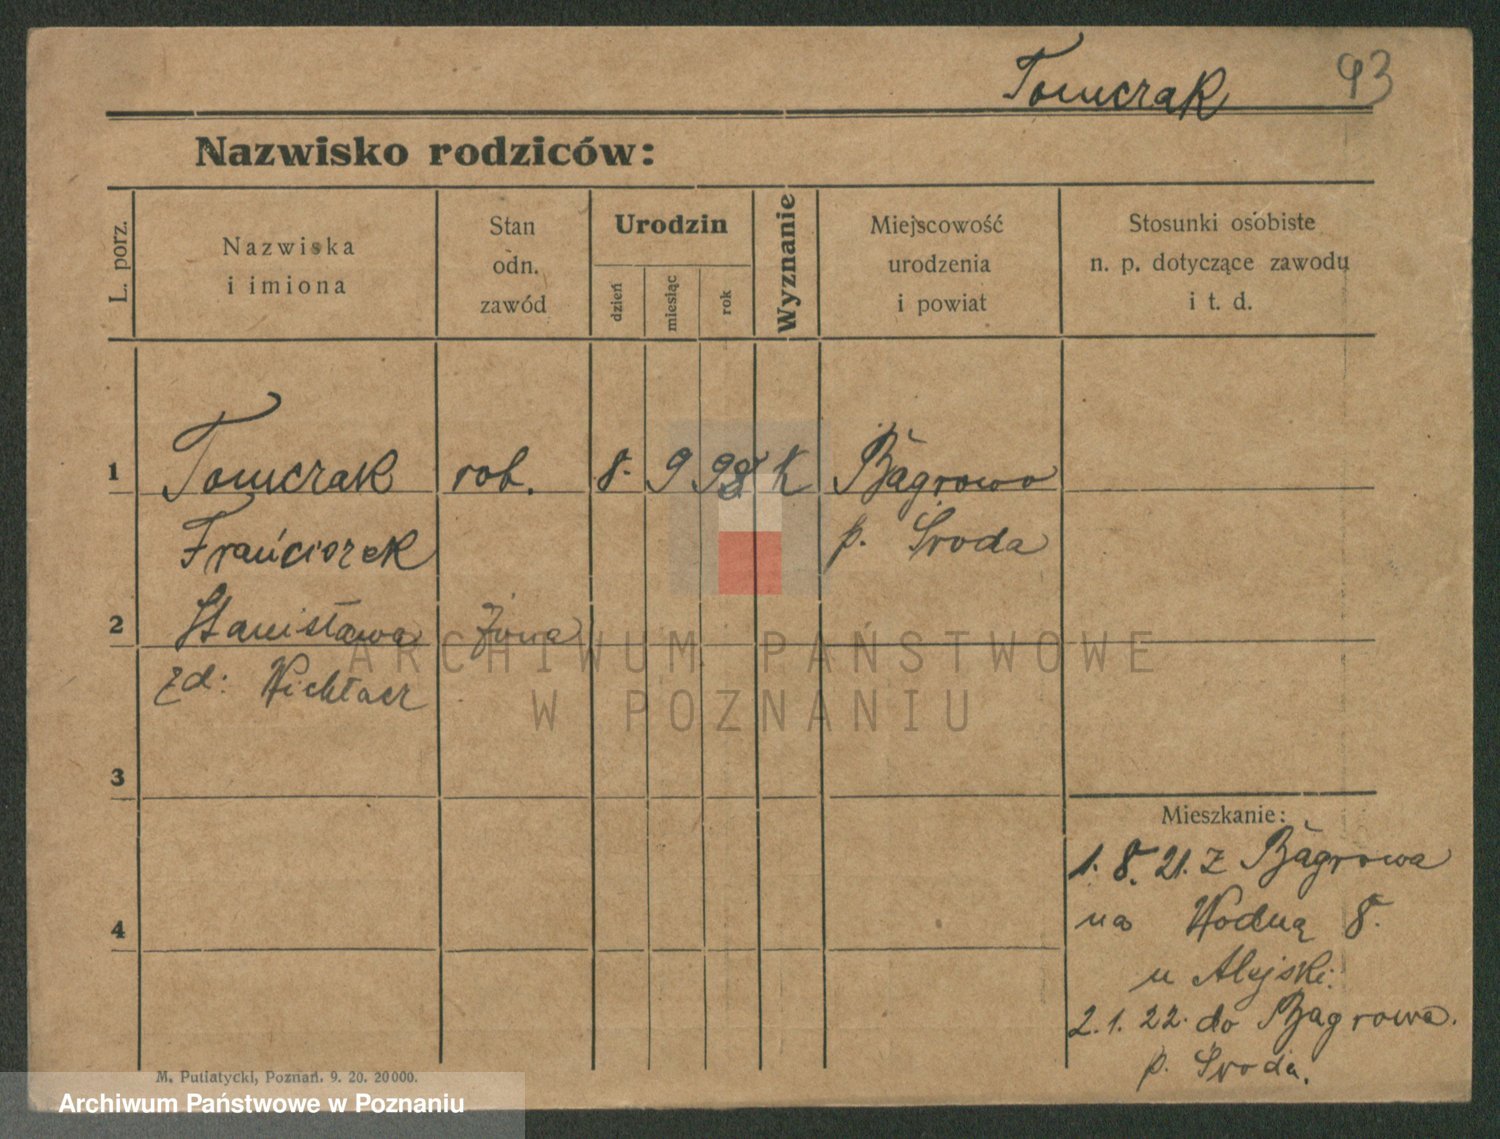 Tomczak 93
Nazwisko rodziców:
L. porz.
Nazwiska
i imiona
Stan
odn.
zawód
Urodzin
dzień
miesiąc
rok
Wyznanie
Miejscowość
urodzenia
i powiat
Stosunki osobiste
n. p. dotyczące zawodu
i t. d.
1 Tomczak rob. 8. 9 98 K Bagrowo
Franciszek p. Środa
2 Stanisława żona
zd: Wichłacz
3
4
Mieszkanie:
1. 8. 21. z Bagrowa
na Wodną 8.
u Alejski.
2. 1. 22. do Bagrowa.
p. Środa.
M. Putiatycki, Poznań. 9. 20. 20000.
ARCHIWUM PAŃSTWOWE
W POZNANIU
Archiwum Państwowe w Poznaniu